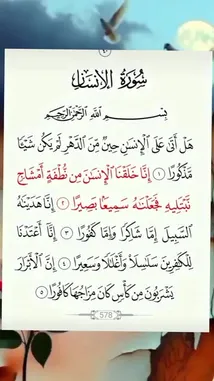 سُورَةُ الْإِنسَانِ
بِسْمِ اللَّهِ الرَّحْمَٰنِ الرَّحِيمِ
هَلْ أَتَىٰ عَلَى الْإِنسَٰنِ حِينٌ مِّنَ الدَّهْرِ لَمْ يَكُن شَيْـًٔا
مَّذْكُورًا ١ إِنَّا خَلَقْنَا الْإِنسَٰنَ مِن نُّطْفَةٍ أَمْشَاجٍ
نَّبْتَلِيهِ فَجَعَلْنَٰهُ سَمِيعًۢا بَصِيرًا ٢ إِنَّا هَدَيْنَٰهُ
السَّبِيلَ إِمَّا شَاكِرًا وَإِمَّا كَفُورًا ٣ إِنَّا أَعْتَدْنَا
لِلْكَٰفِرِينَ سَلَٰسِلَا۟ وَأَغْلَٰلًا وَسَعِيرًا ٤ إِنَّ الْأَبْرَارَ
يَشْرَبُونَ مِن كَأْسٍ كَانَ مِزَاجُهَا كَافُورًا ٥
578